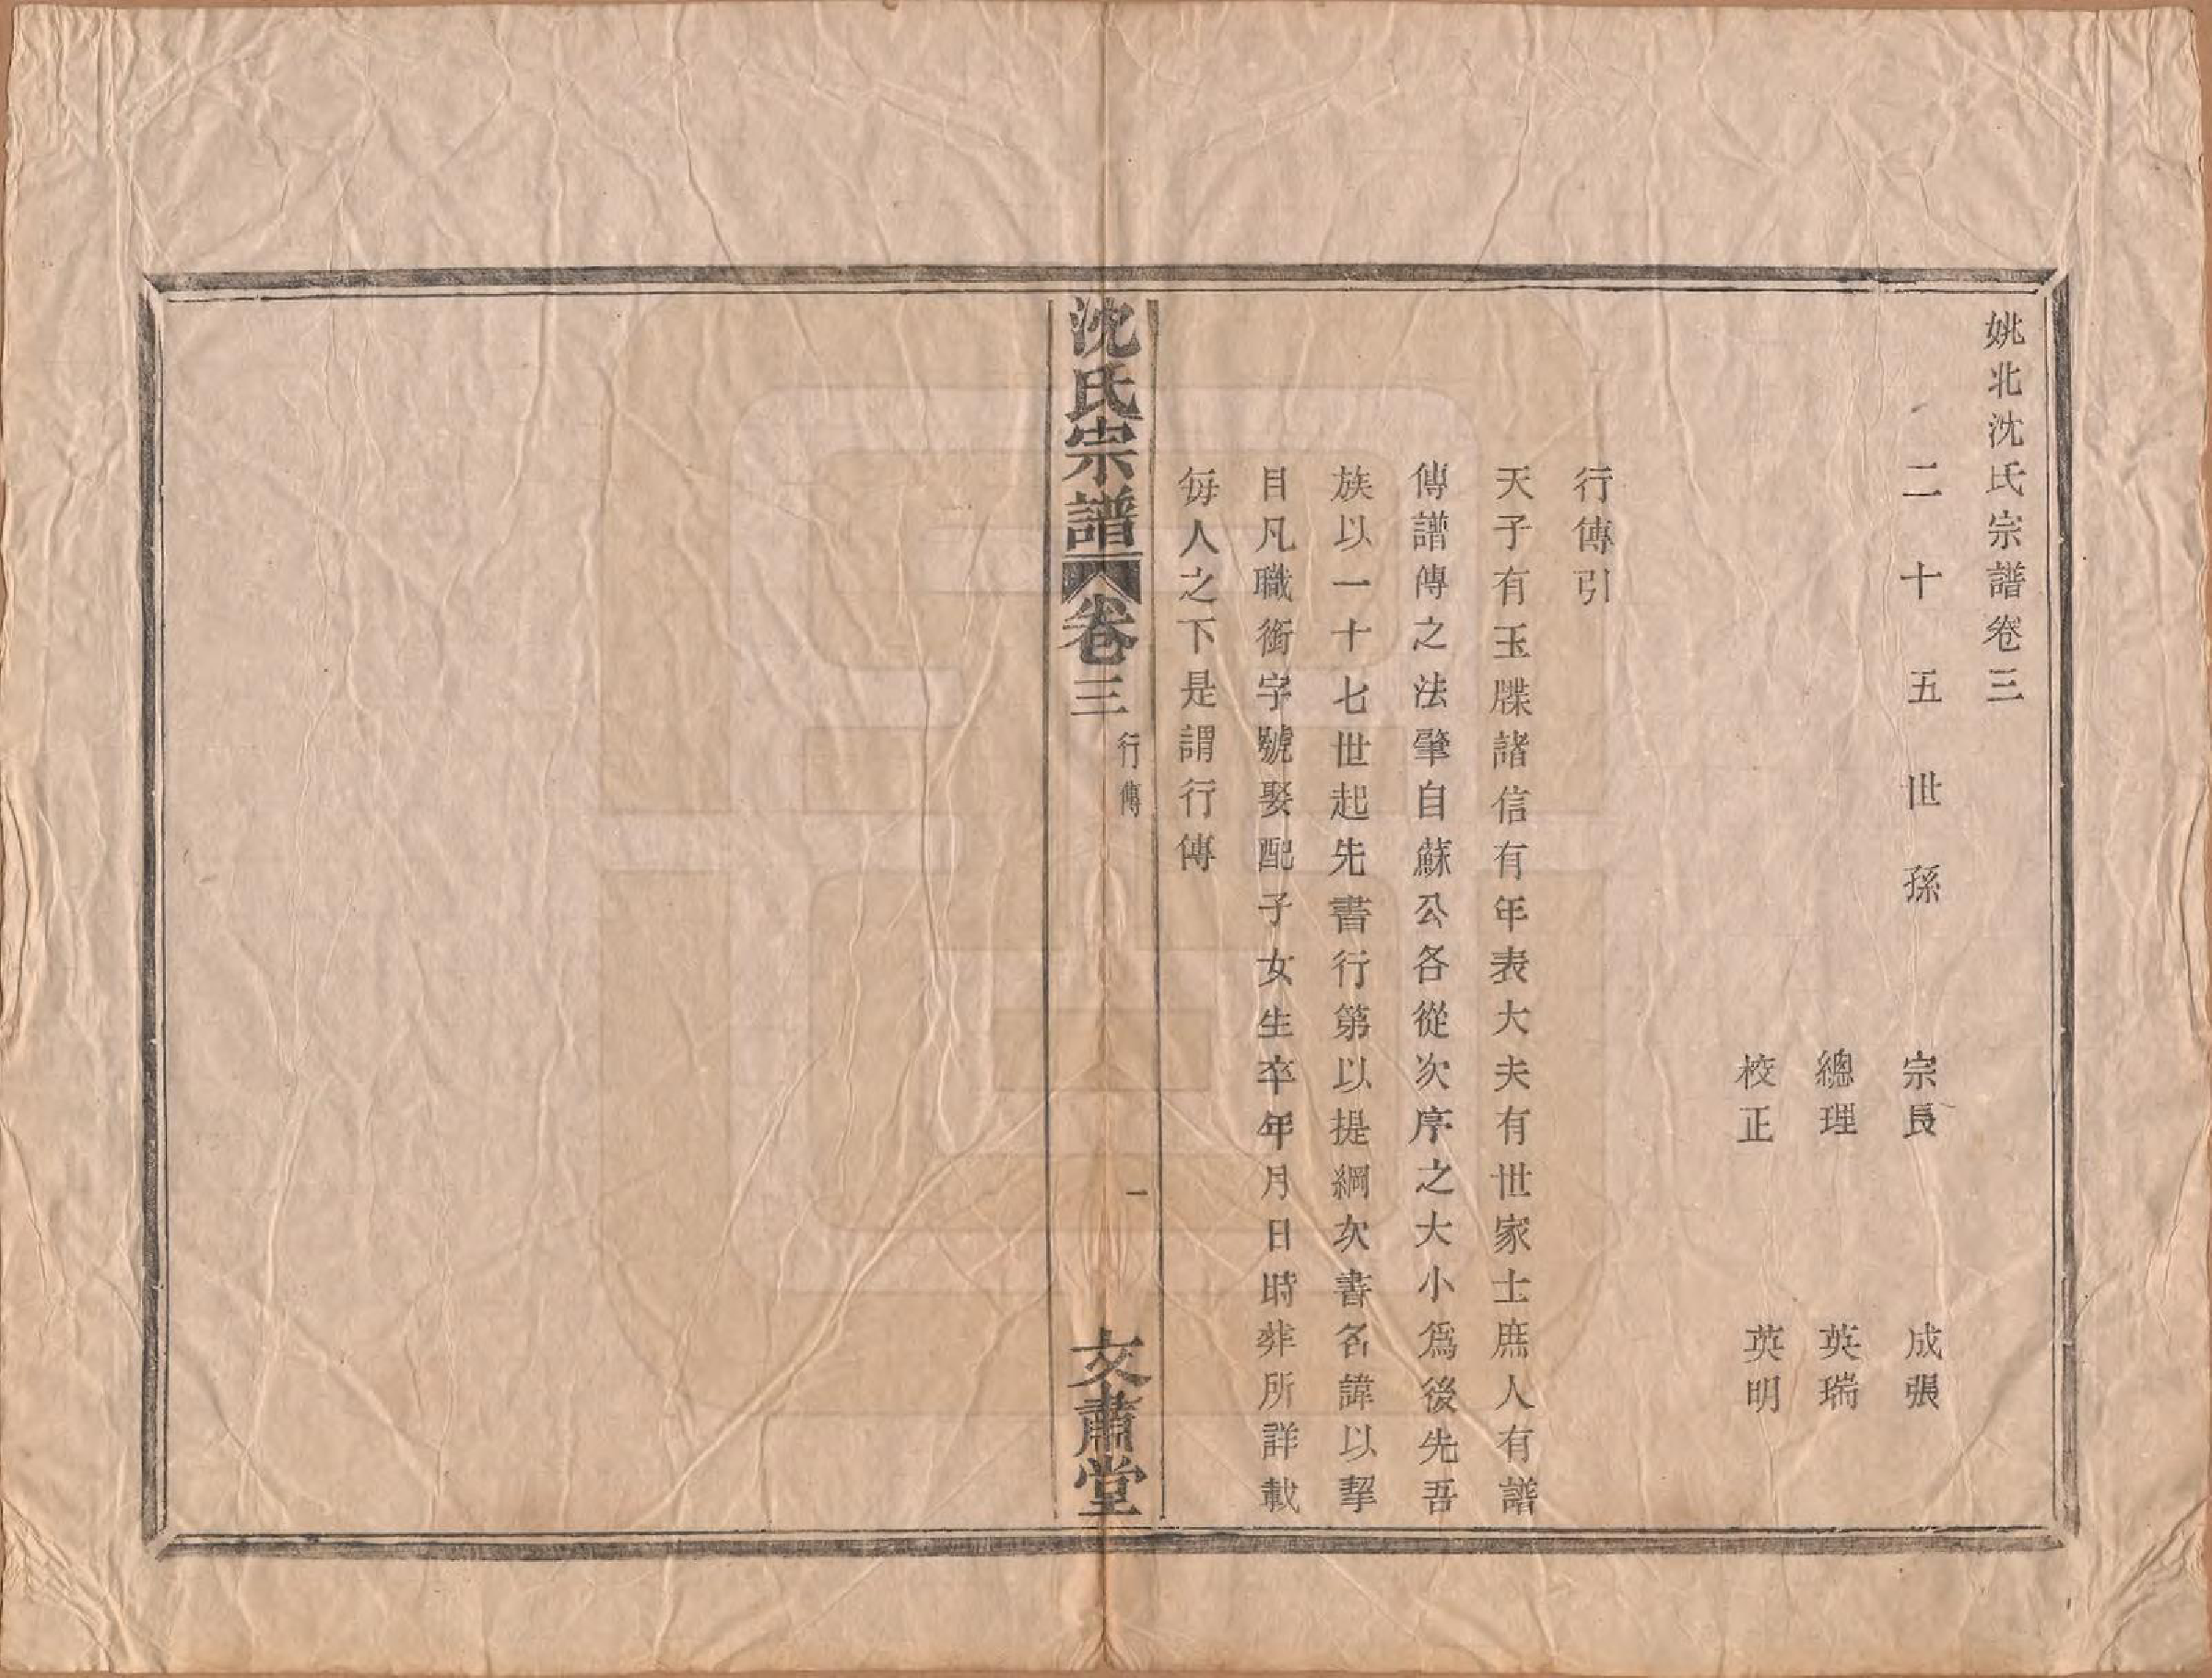 姚北沈氏宗譜卷三
二十五世孫 宗長 成張
總理 英瑞
校正 英明
行傳引
天子有玉牒諸信有年表大夫有世家士庶人有譜
傳譜傳之法肇自蘇公各從次序之大小爲後先吾
族以一十七世起先書行第以提綱次書名諱以挈
目凡職銜字號娶配子女生卒年月日時葬所詳載
每人之下是謂行傳
沈氏宗譜 卷三 行傳 一 文肅堂